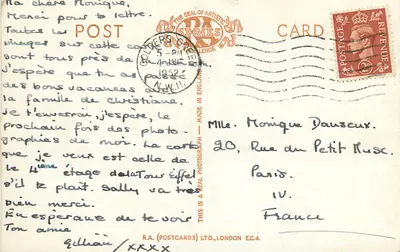 Ma chère Monique,
Merci pour ta lettre.
Toutes les
images sur cette carte
sont tous près de
J'espère que tu as passé
des bons vacances avec
la famille de Christiane.
Je t'enverrai, j'espère, le
prochain fois des photo-
graphies de moi. La carte
que je veux est celle de
le 4ième étage de la Tour Eiffel
s'il te plaît. Sally va très
bien merci.
En esperance de te voir
Ton amie
Gillian/xxxx
POST
THE SEAL OF ARTISTIC
RA
SERIES
CARD
GOLDERS GREEN
5 - PM
1952
N.W.11.
POSTAGE
REVENUE
THIS IS A REAL PHOTOGRAPH — MADE IN ENGLAND
Mlle. Monique Danseux.
20, Rue du Petit Musc.
Paris.
IV.
France
R.A. (POSTCARDS) LTD., LONDON E.C.4.